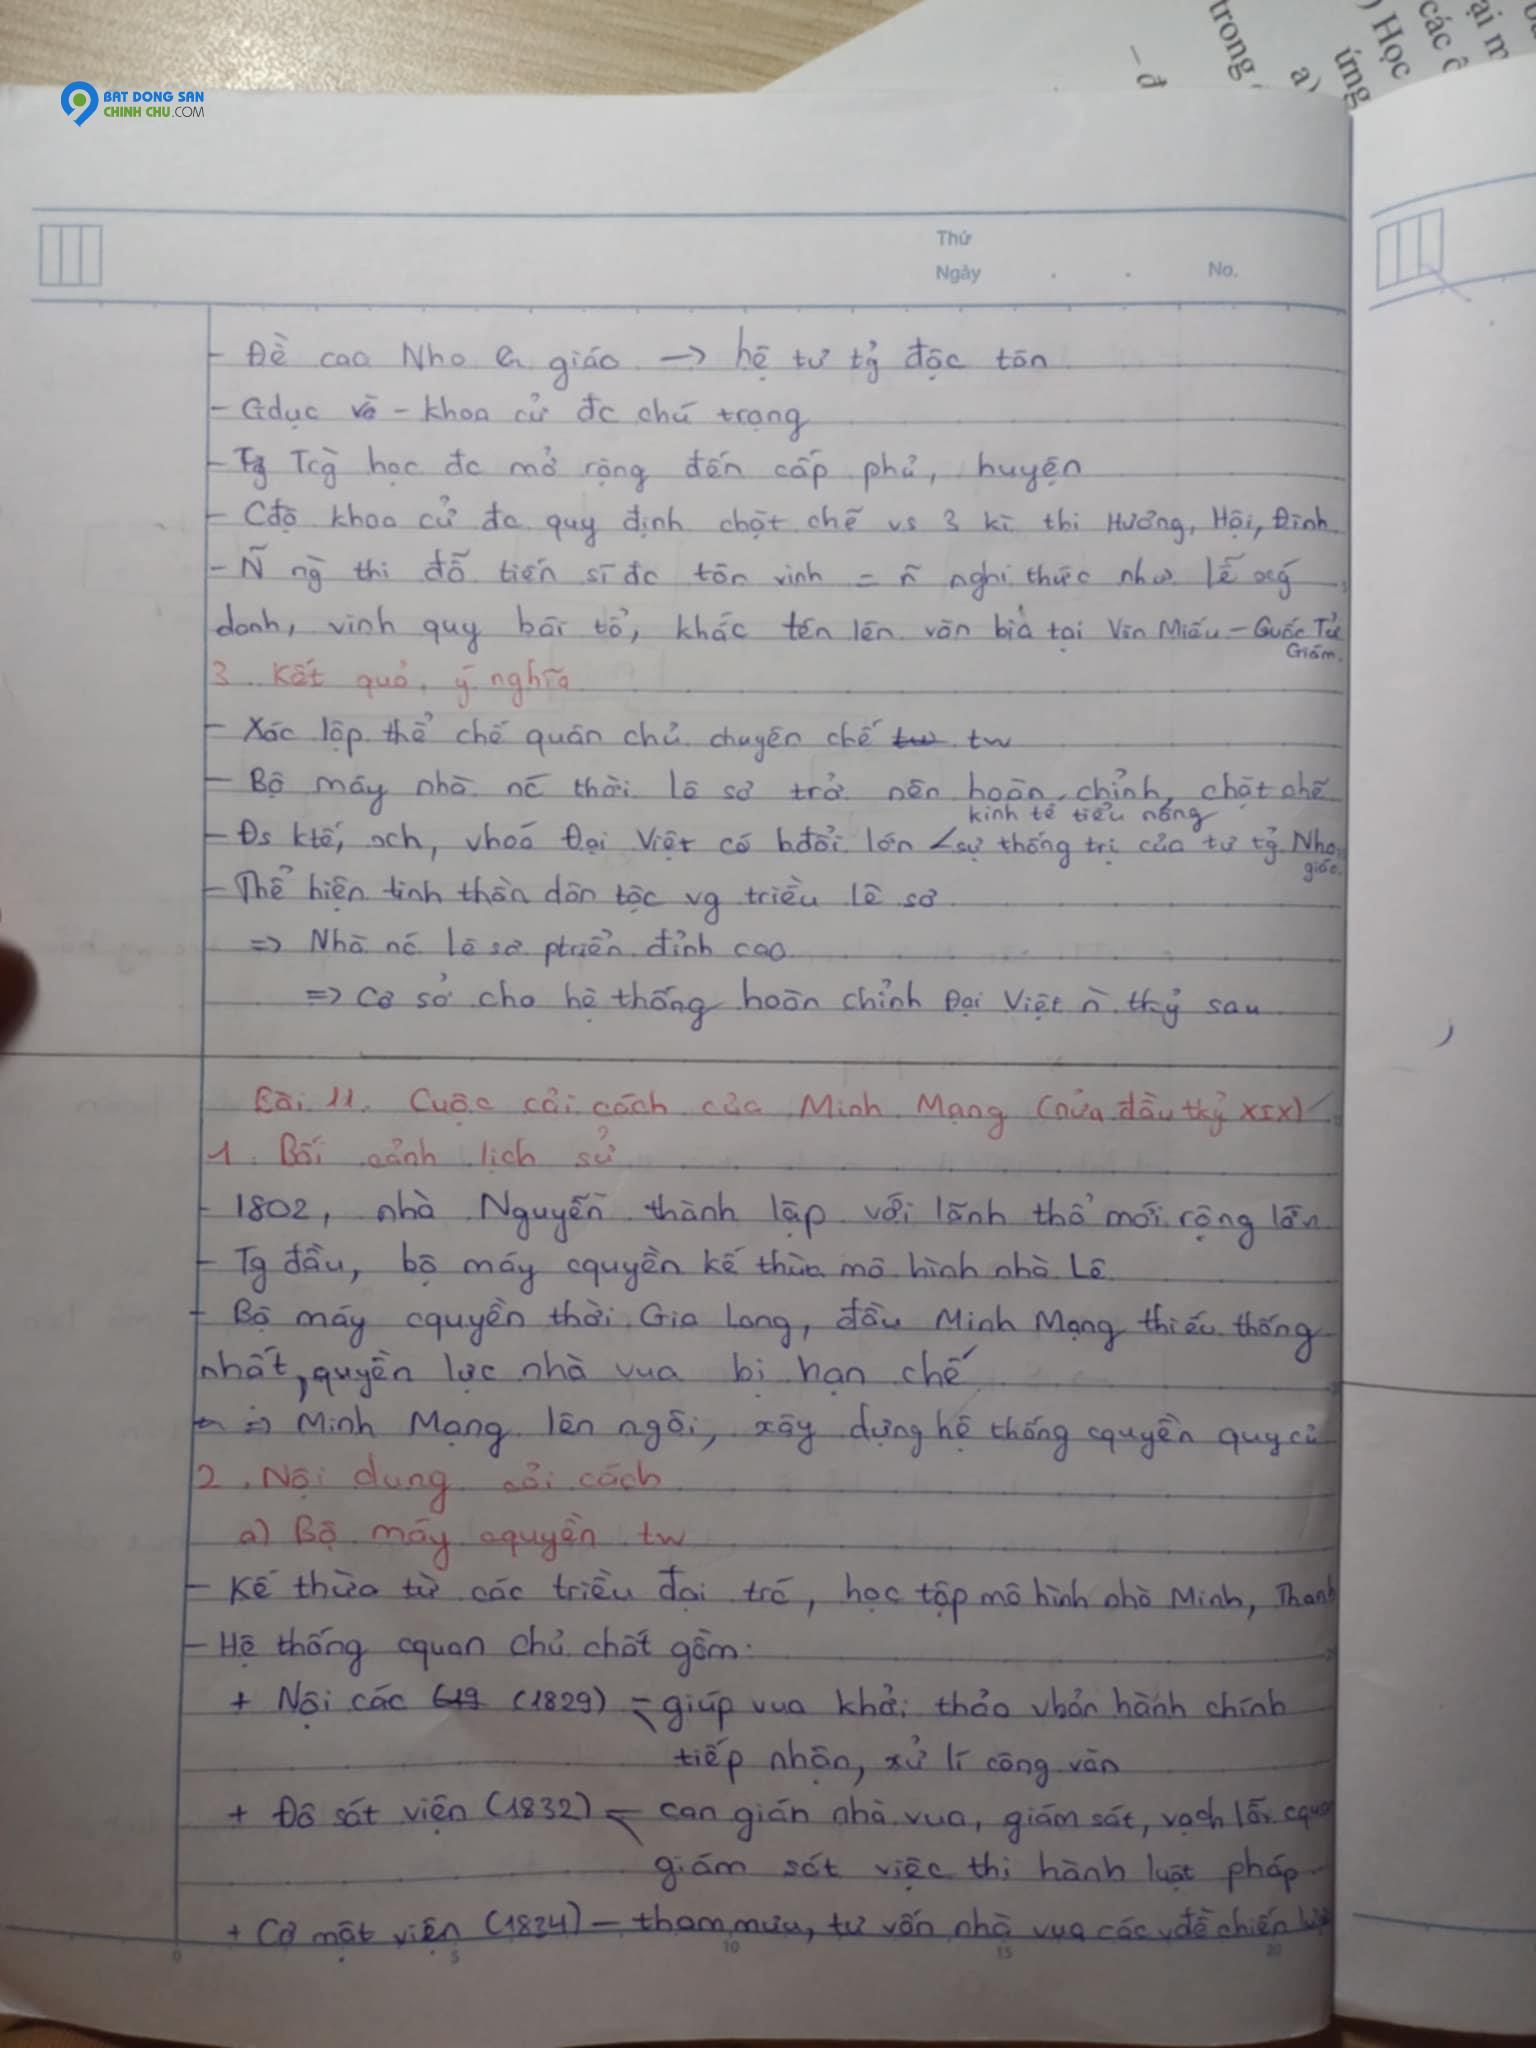 BAT DONG SAN
CHINH CHU.COM
trong
– đ
a)
ứng
) Học
các
ại m
Thứ
Ngày . . No.
- Đề cao Nho giáo -> hệ tư tg̉ độc tôn
- Gdục và - khoa cử đc chú trọng
- Trg̀ học đc mở rộng đến cấp phủ, huyện
- Cđộ khoa cử đc quy định chặt chẽ vs 3 kì thi Hương, Hội, Đình
- Ñ ng̀ thi đỗ tiến sĩ đc tôn vinh = ñ nghi thức như lễ xg
danh, vinh quy bái tổ, khắc tên lên văn bia tại Văn Miếu - Quốc Tử
Giám.
3. Kết quả, ý nghĩa
- Xác lập thể chế quân chủ chuyên chế tw tw
- Bộ máy nhà nc thời Lê sơ trở nên hoàn chỉnh, chặt chẽ
kinh tế tiểu nông
- Đs ktế, xh, vhoá Đại Việt có bđổi lớn < sự thống trị của tư tg̉ Nho
giáo.
- Thể hiện tinh thần dân tộc vg triều Lê sơ
=> Nhà nc Lê sơ ptriển đỉnh cao
=> Cơ sở cho hệ thống hoàn chỉnh Đại Việt ñ tkỷ sau
Bài 11. Cuộc cải cách của Minh Mạng (nửa đầu tkỷ XIX)
1. Bối cảnh lịch sử
- 1802, nhà Nguyễn thành lập với lãnh thổ mới rộng lớn
- Tg đầu, bộ máy cquyền kế thừa mô hình nhà Lê
- Bộ máy cquyền thời Gia Long, đầu Minh Mạng thiếu thống
nhất, quyền lực nhà vua bị hạn chế
=> Minh Mạng lên ngôi, xây dựng hệ thống cquyền quy củ
2. Nội dung cải cách
a) Bộ máy cquyền tw
- Kế thừa từ các triều đại trc, học tập mô hình nhà Minh, Thanh
- Hệ thống cquan chủ chốt gồm:
+ Nội các (1829) - giúp vua khởi thảo vbản hành chính
tiếp nhận, xử lí công văn
+ Đô sát viện (1832) - can gián nhà vua, giám sát, vạch lỗi
giám sát việc thi hành luật pháp
+ Cơ mật viện (1834) - tham mưu, tư vấn nhà vua các vđề chiến
0 5 10 15 20
No.